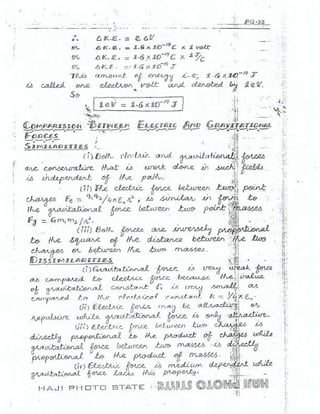 P12-38
∴ ΔK.E. = e ΔV
or ΔK.E. = 1.6 x 10⁻¹⁹ C x 1 volt
or ΔK.E. = 1.6 x 10⁻¹⁹ C x 1 J/C
or ΔK.E. = 1.6 x 10⁻¹⁹ J
This amount of energy i-e; 1.6 x 10⁻¹⁹ J
is called one electron volt and denoted by 1eV.
So
1eV = 1.6 x 10⁻¹⁹ J
COMPARISION BETWEEN ELECTRIC AND GRAVITATIONAL
FORCES
SIMILARITIES :
(i) Both electric and gravitational forces
are conservative that is work done in such fields
is independent of the path.
(ii) The electric force between two point
charges Fe = q₁q₂/4πε₀r², is similar in form to
the gravitational force between two point masses
Fg = Gm₁m₂/r².
(iii) Both forces are inversly proportional
to the square of the distance between the two
charges or between the two masses.
DISSIMILARITIES
(i) Gravitational force is very weak force
as compared to electric force because the value
of gravitational constant G is very small as
compared to the electrical constant K = 1/4πε₀.
(ii) Electric force may be attractive or
repulsive while gravitational force is only attractive.
(iii) Electric force between two charges is
directly proportional to the product of charges while
gravitational force between two masses is directly
proportional to the product of masses.
(iv) Electric force is medium dependent while
gravitational force lacks this property.
HAJI PHOTO STATE
HAJI PHOTO STATE